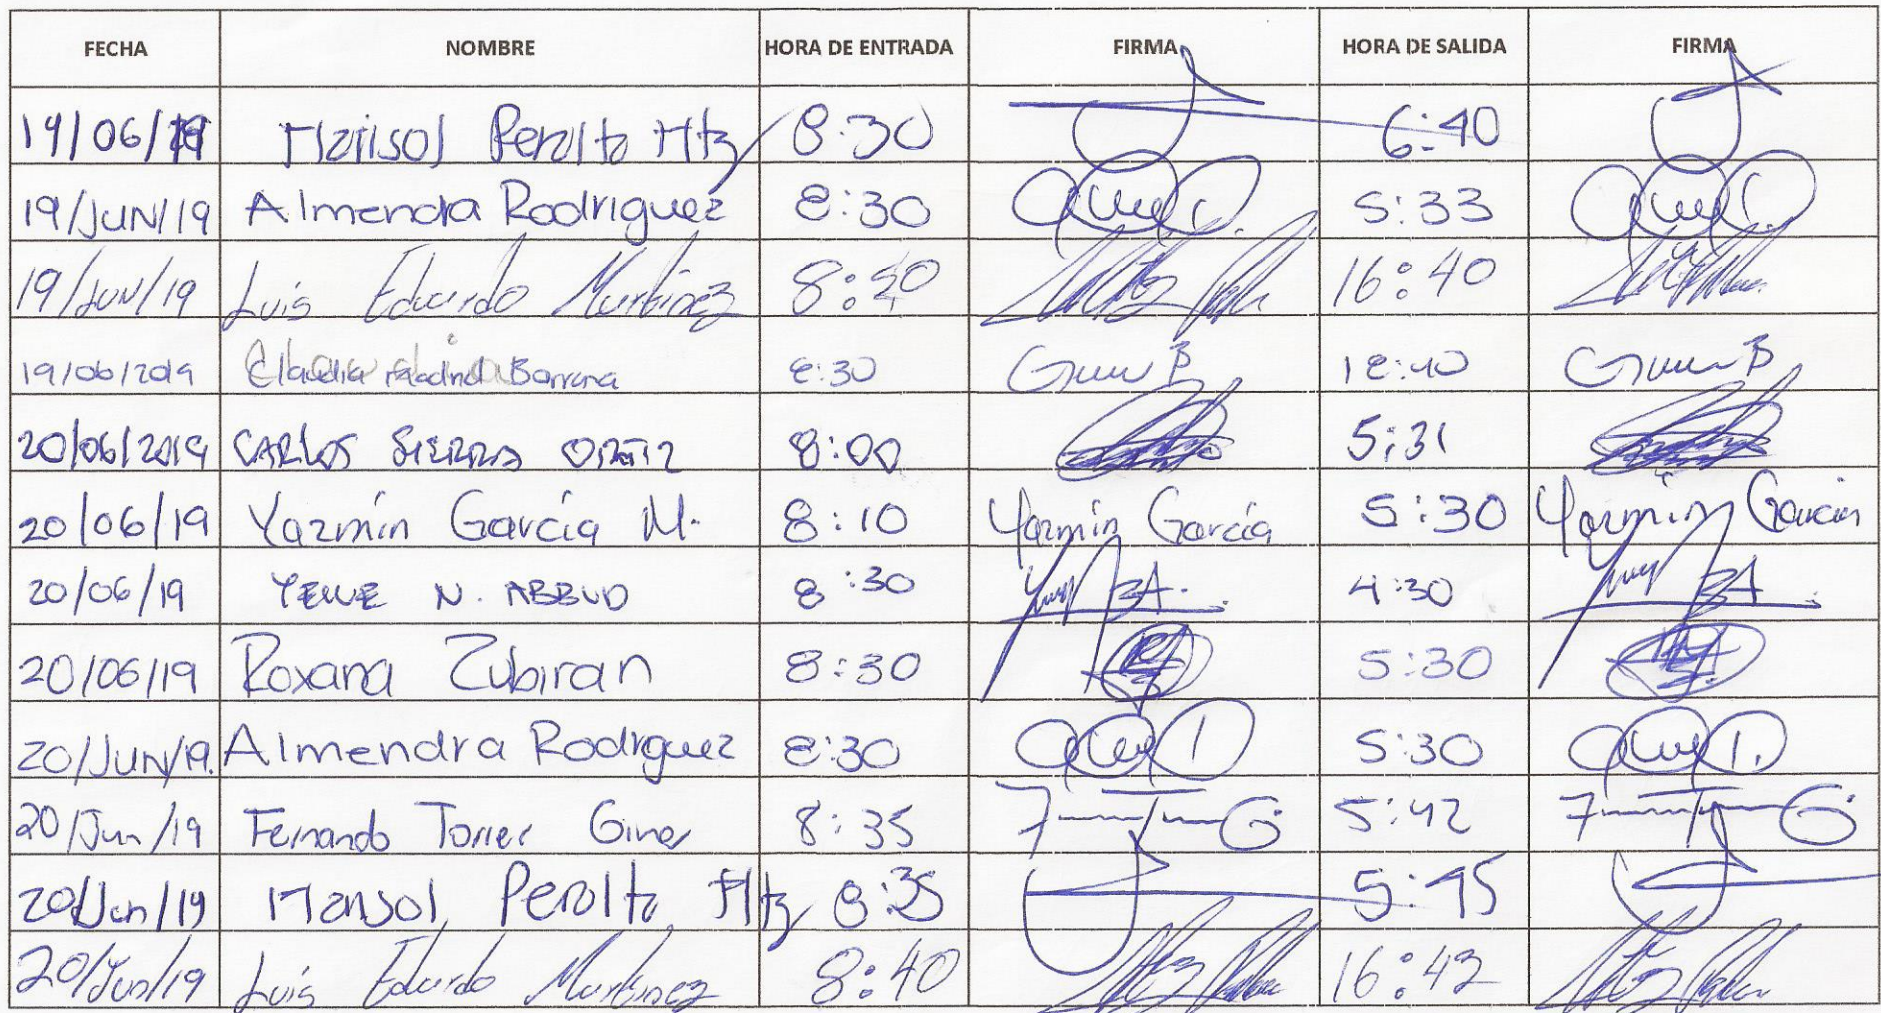 FECHA NOMBRE HORA DE ENTRADA FIRMA HORA DE SALIDA FIRMA
19/06/19 Marisol Peralta Mtz 8:30 6:40
19/JUN/19 Almendra Rodriguez 8:30 5:33
19/Jun/19 Luis Eduardo Martinez 8:50 16:40
19/06/2019 Claudia Barrera 8:30 18:40
20/06/2019 CARLOS SIERRA ORTIZ 8:00 5:31
20/06/19 Yazmín García M. 8:10 Yazmín García 5:30 Yazmín García
20/06/19 N. ABBUD 8:30 4:30
20/06/19 Roxana Zubiran 8:30 5:30
20/Jun/19. Almendra Rodriguez 8:30 5:30
20/Jun/19 Fernando Torres Giner 8:35 5:42
20/Jun/19 Marisol Peralta Mtz 8:35 5:45
20/Jun/19 Luis Eduardo Martinez 8:40 16:42